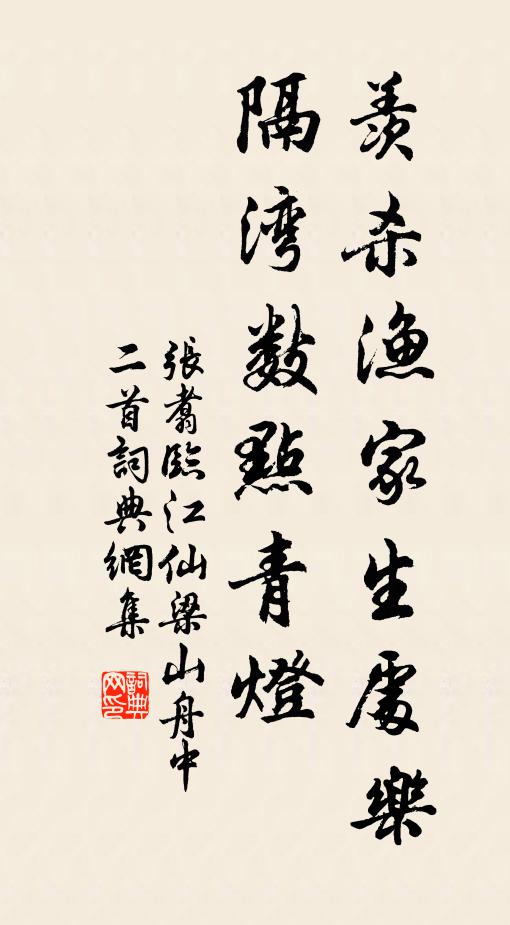 羨殺漁家生處樂
隔湾數點青燈
張翥臨江仙梁山舟中
二首詞典網集
詞典网印